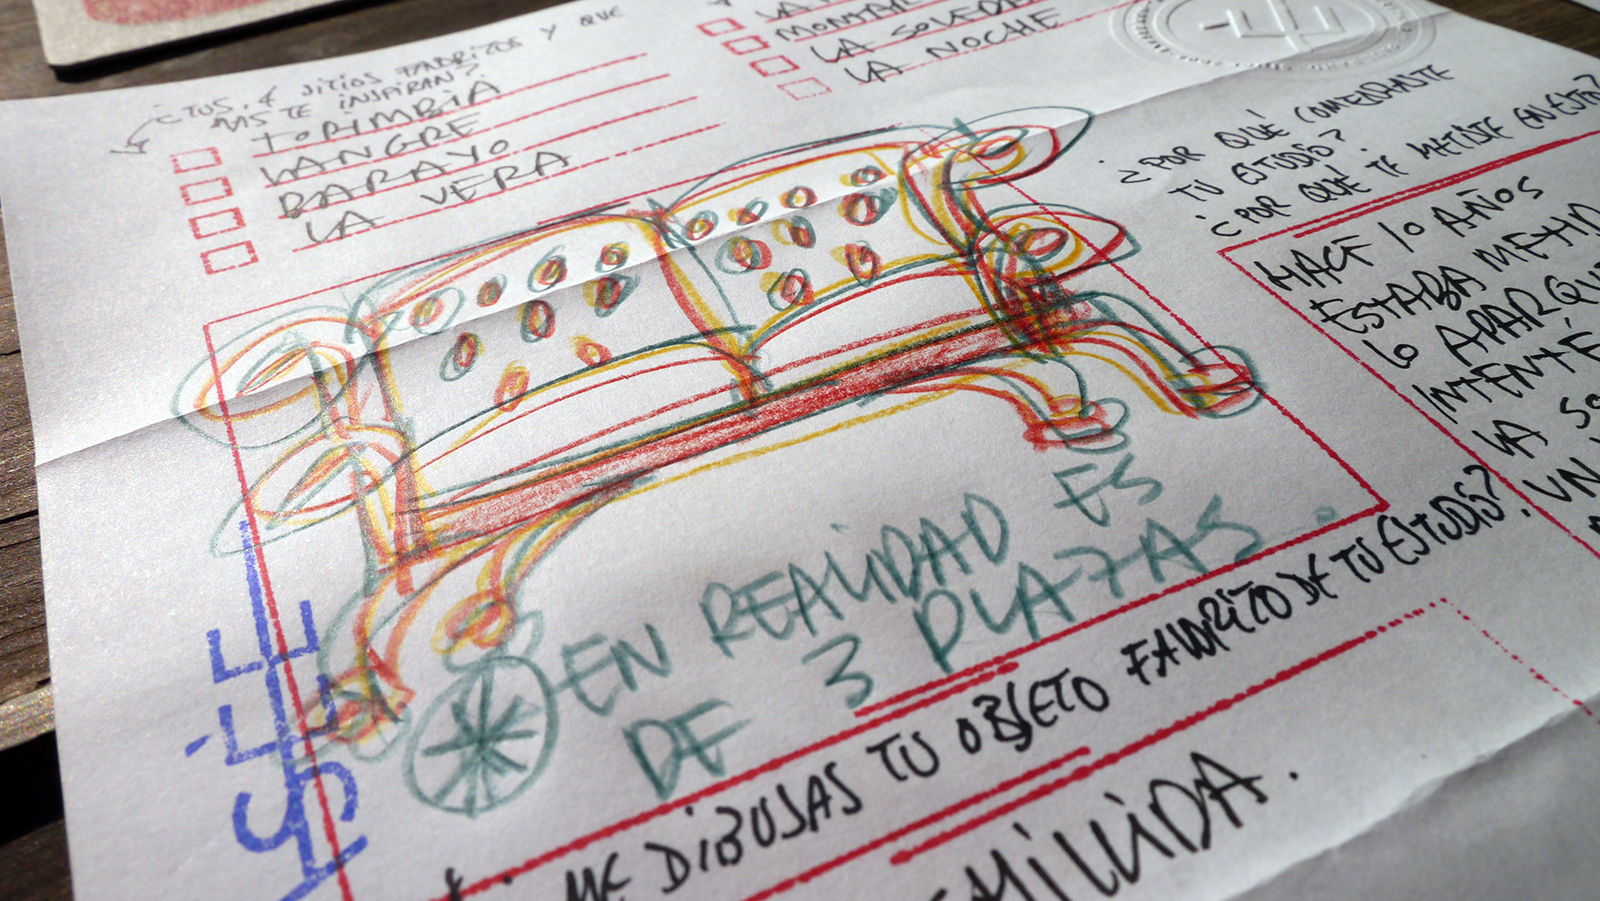 ¿TUS 4 SITIOS FAVORITOS Y QUE
MS TE INSPIRAN?
TORIMBIA
LANGRE
BARAYO
LA VERA
MONTAR
LA SOLEDAD
LA NOCHE
¿POR QUÉ COMENZASTE
TU ESTUDIO?
¿POR QUÉ TE METISTE EN ESTO?
HACE 10 AÑOS
ESTABA METID
LO APARQU
INTENTÉ
LA SO
UN
* EN REALIDAD ES
DE 3 PLAZAS.
¿ME DIBUJAS TU OBJETO FAVORITO DE TU ESTUDIO?
HILLIDA.